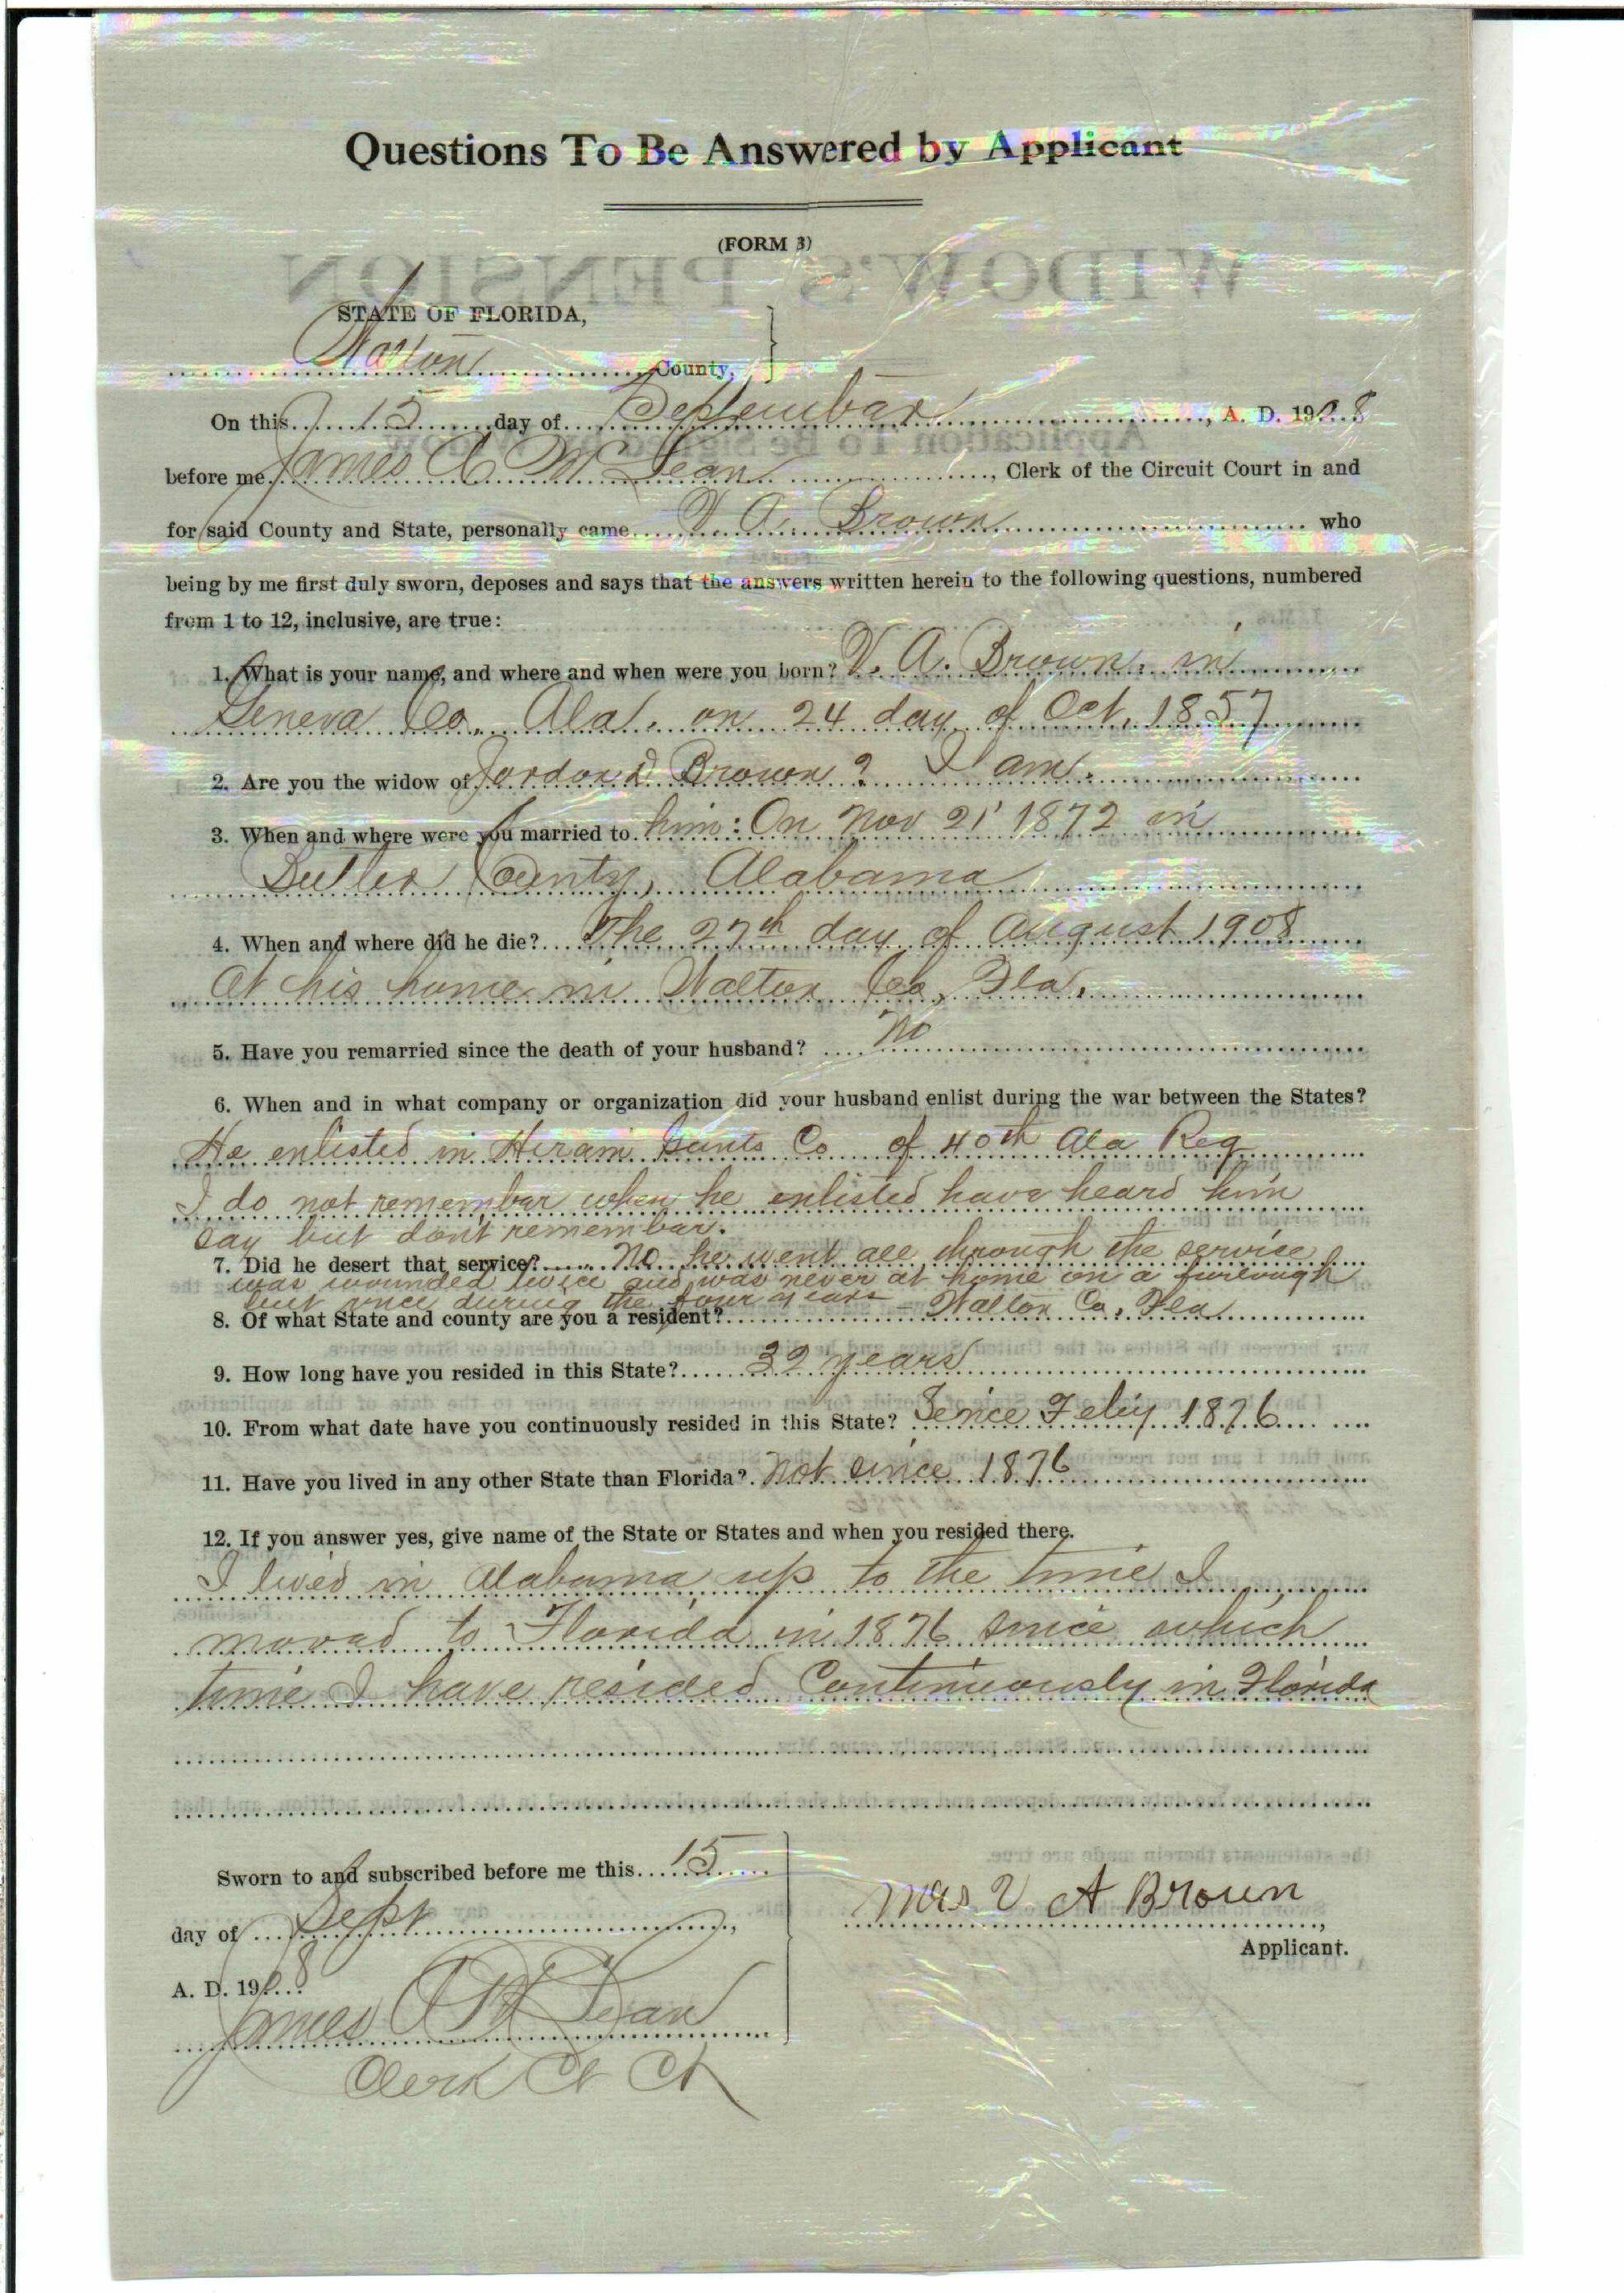 Questions To Be Answered by Applicant
(FORM 3)
WIDOW'S PENSION
STATE OF FLORIDA,
Walton County,
On this 15 day of Septembar, A. D. 1908
before me James A McLean, Clerk of the Circuit Court in and
for said County and State, personally came V. A. Brown who
being by me first duly sworn, deposes and says that the answers written herein to the following questions, numbered
from 1 to 12, inclusive, are true:
1. What is your name, and where and when were you born? V. A. Brown. in
Geneva Co. Ala. on 24 day of Oct. 1857
2. Are you the widow of Jordon D Brown? I am.
3. When and where were you married to him: On Nov 21 1872 in
Butler County, Alabama
4. When and where did he die? The 27th day of August 1908
At his home in Walton Co, Fla.
5. Have you remarried since the death of your husband? No
6. When and in what company or organization did your husband enlist during the war between the States?
He enlisted in Hiram Gants Co of 40th Ala Reg
I do not remembar when he enlisted have heard him
say but dont remembar.
7. Did he desert that service? No he went all through the service
was wounded twice and was never at home on a furlough
but once during the four years
8. Of what State and county are you a resident? - Walton Co, Fla
9. How long have you resided in this State? 32 years
10. From what date have you continuously resided in this State? Since Feby 1876
11. Have you lived in any other State than Florida? Not since 1876
12. If you answer yes, give name of the State or States and when you resided there.
I lived in Alabama up to the time I
moved to Florida in 1876 since which
time I have resided Continuously in Florida
Sworn to and subscribed before me this 15
day of Sept,
A. D. 1908
James A McLean
Clerk Ct Ct
Mrs V A Brown,
Applicant.